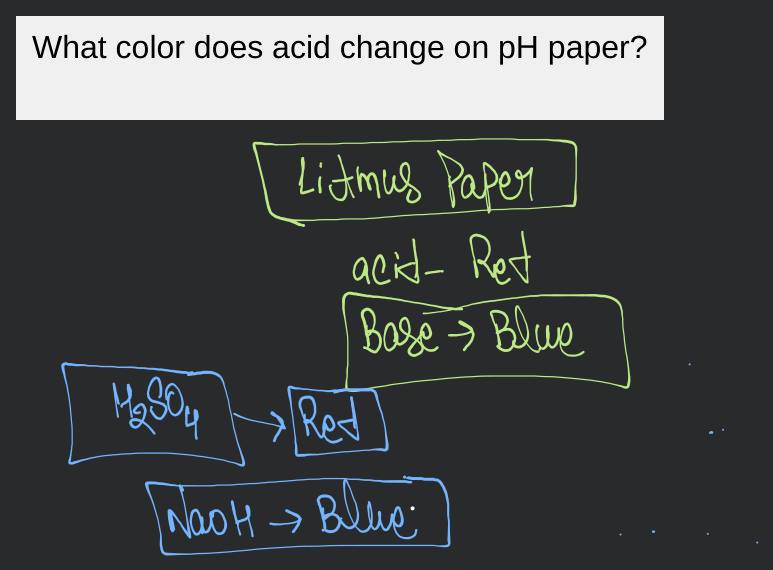 What color does acid change on pH paper?
Litmus Paper
acid- Red
Base → Blue
H2SO4 → Red
NaOH → Blue